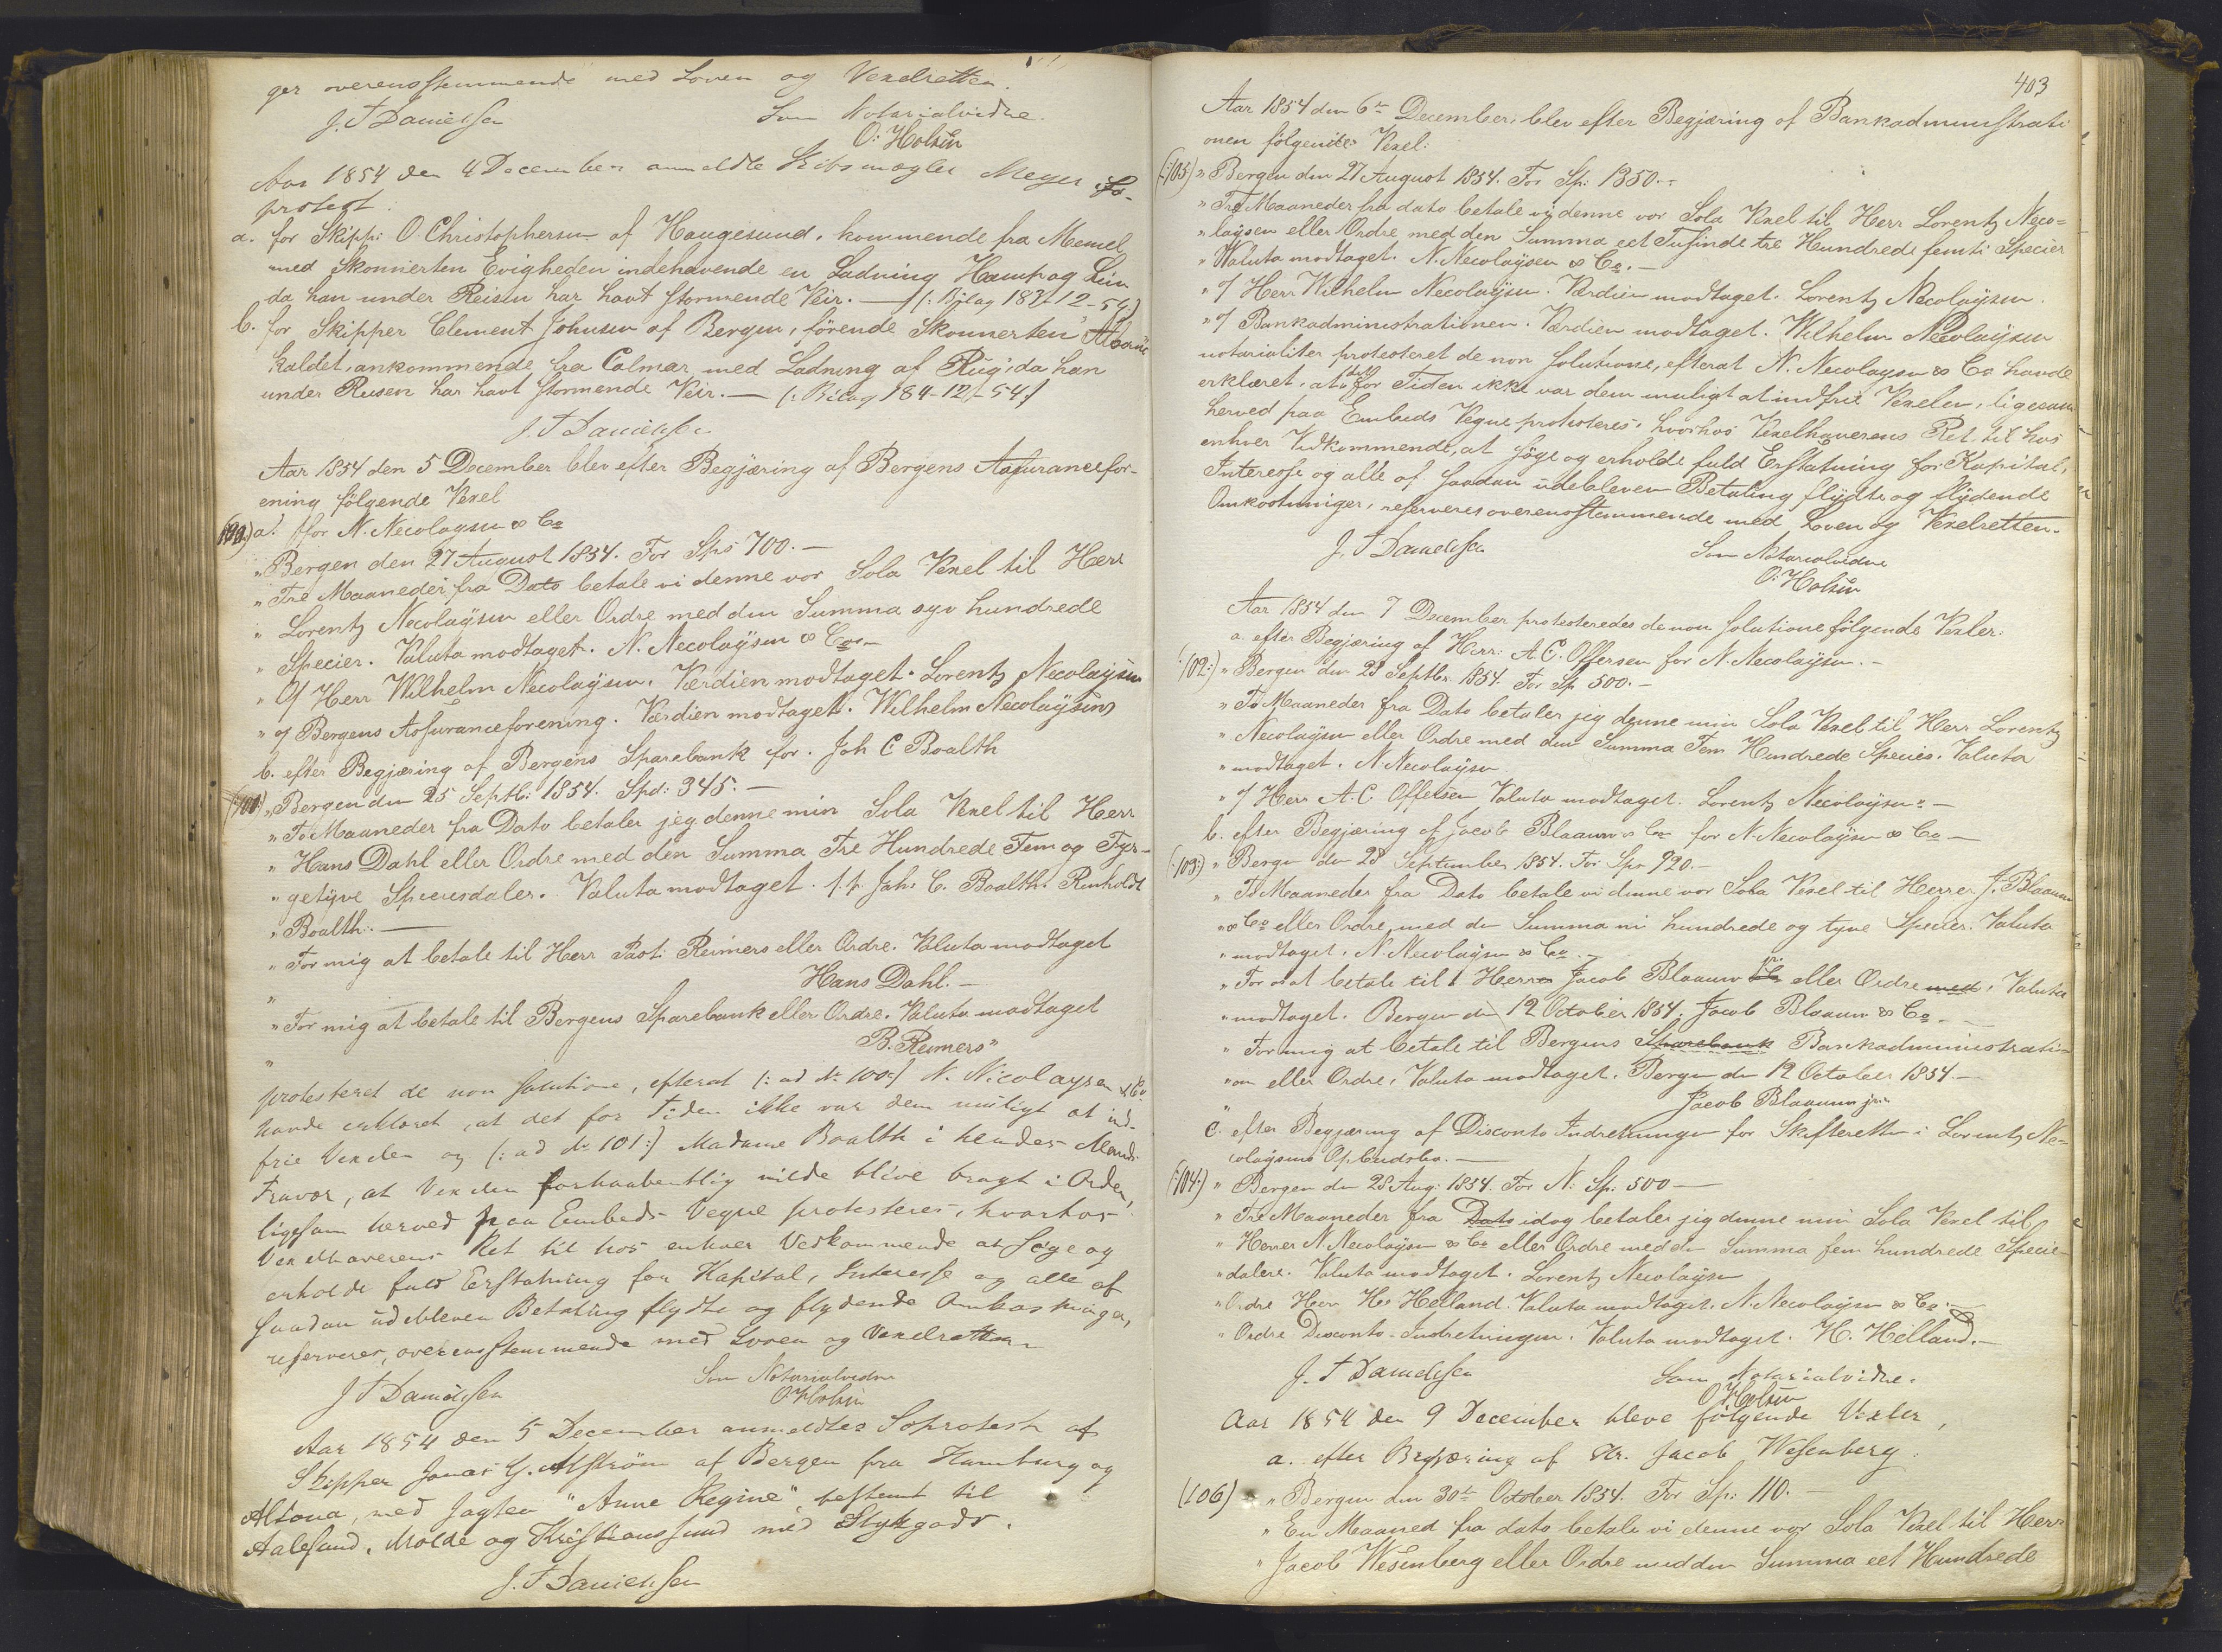 ger overensstemmende med Loven og Vexelretten.
J. F Danielsen
Som Notarialvidne.
O: Holsen
Aar 1854 den 4 December anmeldte Skibsmægler Meyer Sø-
protest.
a. for Skipp: O. Christophersen af Haugesund, kommende fra Memel
med Skonnerten Evigheden indehavende en Ladning Hamp og Lin
da han under Reisen har havt stormende Veir. — (: Bilag 183-12-54)
b. for Skipper Clement Johnsen af Bergen, førende Skonnerten
kaldet, ankommende fra Calmar med Ladning af Rug, da han
under Reisen har havt stormende Veir. — (: Bilag 184-12-54)
J. F Danielsen
Aar 1854 den 5 December blev efter Begjæring af Bergens Assurancefor-
ening følgende Vexel
(100) a. for N. Necolaysen & Co
"Bergen den 27 August 1854. For Sps 700.—
"Tre Maaneder fra Dato betale vi denne vor Sola Vexel til Herr
"Lorentz Necolaÿsen eller Ordre med den Summa syv hundrede
"Specier. Valuta modtaget. N. Necolaÿsen & Co.—
"Of Herr Wilhelm Necolaÿsen. Værdien modtaget. Lorentz Necolaÿsen
"of Bergens Assuranceforening. Værdien modtaget. Wilhelm Necolaÿsen
b. efter Begjæring af Bergens Sparebank for. Joh C. Boalth
(101) "Bergen den 25 Septb: 1854. Spd: 345.—
"To Maaneder fra Dato betaler jeg denne min Sola Vexel til Herr
"Hans Dahl eller Ordre med den Summa Tre Hundrede Fem og Fyr-
"getÿve Speciesdaler. Valuta modtaget. p.p. Joh: C. Boalth. Reinholdt
"Boalth.—
"For mig at betale til Herr Reimers eller Ordre. Valuta modtaget
" Hans Dahl.—
"For mig at betale til Bergens Sparebank eller Ordre. Valuta modtaget
" B. Reimers"
protesteret de non solutione, efterat (: ad No 100:) N. Nicolaysen & Co
havde erklæret, at det for Tiden ikke var dem muligt at ind-
frie Vexlen og (: ad No 101:) Madame Boalth i hendes Mands
Fravær, at Vexlen forhaabentlig vilde blive bragt i Orden,
ligesom herved paa Embeds Vegne protesteres, hvorhos
Vexelhaverens Ret til hos enhver Vedkommende at søge og
erholde fuld Erstatning for Kapital, Interesse og alle af
saadan udebleven Betaling flydte og flydende Omkostninger,
reserveres, overensstemmende med Loven og Vexelretten
J F Danielsen
Som Notarialvidne
O Holsen
Aar 1854 den 5 December anmeldtes Søprotest af
Skipper Jonas G. Alstrøm af Bergen fra Hamburg og
Altona, med Jagten "Anne Regine", bestemt til
Aalesund, Molde og Kristianssund med Stykgods.
J. F Danielsen
403
Aar 1854 den 6te December, blev efter Begjæring af Bankadministrati
onen følgende Vexel:
(105) "Bergen den 27 August 1854. For Sp: 1350.-
"Tre Maaneder fra dato betale vi denne vor Sola Vexel til Herr Lorentz Neco=
"laÿsen eller Ordre med den Summa eet Tusinde tre Hundrede femti Specier
"Waluta modtaget. N. Necolaÿsen & Co.—
"of Herr Wilhelm Necolaÿsen. Værdien modtaget. Lorentz Necolaÿsen.
"of Bankadministrationen. Værdien modtaget. Wilhelm Necolaÿsen
notarialiter protesteret de non solutione, efterat N. Necolaysen & Co havde
erklæret, at det for Tiden ikke var dem muligt at indfrie Vexelen, ligesom
herved paa Embeds Vegne protesteres, hvorhos Vexelhaverens Ret til hos
enhver Vedkommende, at søge og erholde fuld Erstatning for Kapital,
Interesse og alle af saadan udebleven Betaling flÿdte og flÿdende
Omkostninger, reserveres overensstemmende med Loven og Vexelretten.
J. F Danielsen
Som Notarialvidne
O: Holsen
Aar 1854 den 7 December protesteredes de non solutione følgende Vexler.
a. efter Begjæring af Herr: A. C. Offersen for N. Necolaÿsen.—
(102:) "Bergen den 28 Septbr. 1854. For Sp 500.—
"To Maaneder fra Dato betaler jeg denne min Sola Vexel til Herr Lorentz
"Necolaÿsen eller Ordre med den Summa Fem Hundrede Species. Valuta
"modtaget. N. Necolaÿsen
"of Herr A. C. Offersen Valuta modtaget. Lorentz Necolaÿsen.—
b. efter Begjæring af Jacob Blaauw & Co for N. Necolaÿsen & Co—
(103:) "Bergen den 28 September 1854. For Sps 920.—
"To Maaneder fra Dato betale vi denne vor Sola Vexel til Herrer J. Blaauw
"& Co eller Ordre, med den Summa ni hundrede og tyve Specier. Valuta
"modtaget, N. Necolaÿsen & Co.—
"For os at betale til Herr Jacob Blaauw jr eller Ordre med. Valuta
"modtaget. Bergen den 12 October 1854. Jacob Blaauw & Co.—
"For mig at betale til Bergens Sparebank Bankadministrati-
"on eller Ordre. Valuta modtaget. Bergen den 12 October 1854.—
Jacob Blaauw jr
c. efter Begjæring af Disconto Indretningen for Skifteretten i Lorentz Ne-
colaÿsens Opbudsbo.—
(104:) "Bergen den 28 Aug: 1854. For N: Sp: 500—
"Tre Maaneder fra Dato idag betaler jeg denne min Sola Vexel til
"Herrer N. Necolaÿsen & Co eller Ordre med den Summa fem hundrede Specie-
"dalere. Valuta modtaget. Lorentz Necolaÿsen
"Ordre Herr H. Helland. Valuta modtaget. N. Necolaÿsen & Co.
"Ordre Disconto-Indretningen. Valuta modtaget. H. Helland.—
J. F Danielsen
Som Notarialvidne.
O. Holsen
Aar 1854 den 9 December bleve følgende Vexler,
a. efter Begjæring af Hr. Jacob Wesenberg.
(106) "Bergen den 30te October 1854. For Sp: 110.—
"En Maaned fra dato betale vi denne vor Sola Vexel til Herr
"Jacob Wesenberg eller Ordre med den Summa eet Hundrede